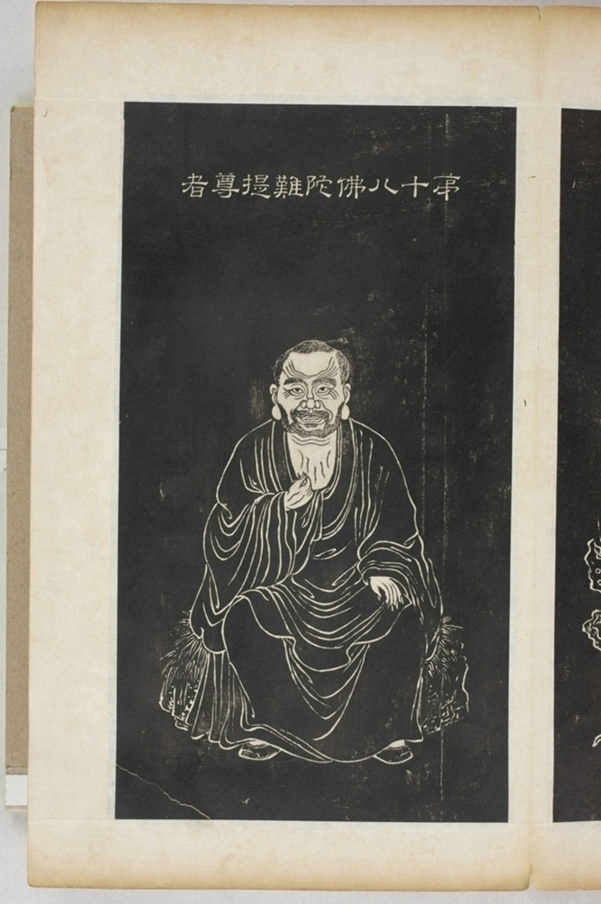 弟十八佛陀難提尊者